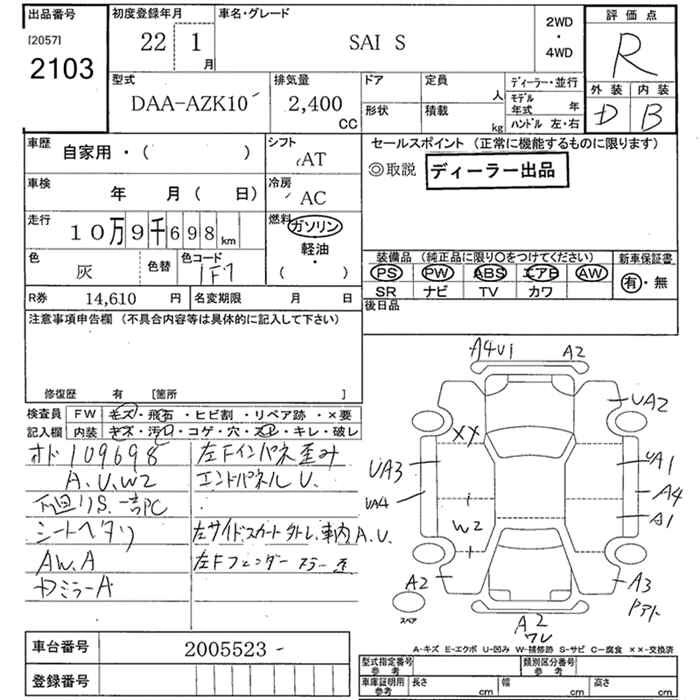 出品番号
[2057]
2103
初度登録年月
22 1
月
車名・グレード
SAI S
2WD
・
4WD
評価点
R
外装 内装
D B
型式
DAA-AZK10
排気量
2,400
CC
ドア
定員
人
形状
積載
kg
ディーラー・並行
モデル
年式 年
ハンドル 左・右
車歴
自家用・( )
シフト
AT
セールスポイント (正常に機能するものに限ります)
◎取説 ディーラー出品
車検
年 月 ( 日)
冷房
AC
走行
10万9千698km
燃料
ガソリン
軽油
・
( )
色
灰
色替
色コード
1F7
装備品 (純正品に限り○をつけてください)
PS PW ABS エアB AW
SR ナビ TV カワ
新車保証書
有・無
R券 14,610 円
名変期限 月 日
後日品
注意事項申告欄 (不具合内容等は具体的に記入して下さい)
修復歴 有 [箇所 ]
検査員
記入欄
FW キズ・飛石・ヒビ割・リペア跡・×要
内装 キズ・汚レ・コゲ・穴・スレ・キレ・破レ
オド109698
A.U.W2
下回りS.一部PC
シートヘタリ
AW.A
ドミラーA
左Fインパネ歪み
エンドパネルU.
左サイドスカート外レ,車内A.U.
左Fフェンダー
A4U1 A2
UA2
XX
UA3
UA4
UA1
A4
A1
W2
A2
A3
スペア
A2
ワレ
A-キズ E-エクボ U-凹み W-補修跡 S-サビ C-腐食 ××-交換済
車台番号
2005523
登録番号
型式指定番号
参考
類別区分番号
参考
車庫証明用
参考
長さ cm
幅 cm
高さ cm